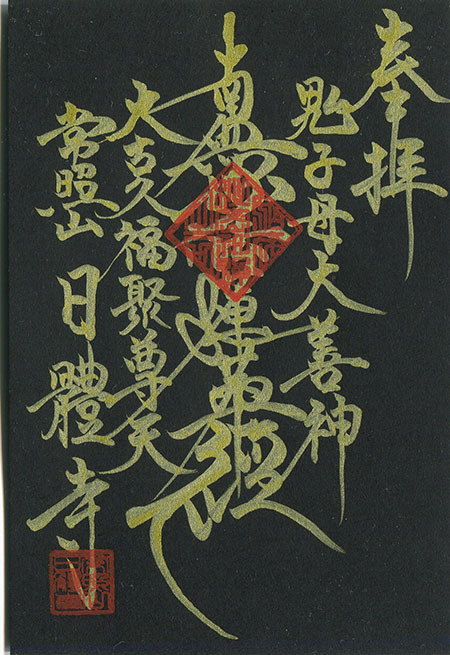 奉拝
鬼子母大善神
南無妙法蓮華経
大古久福聚尊天
常照山
日體寺